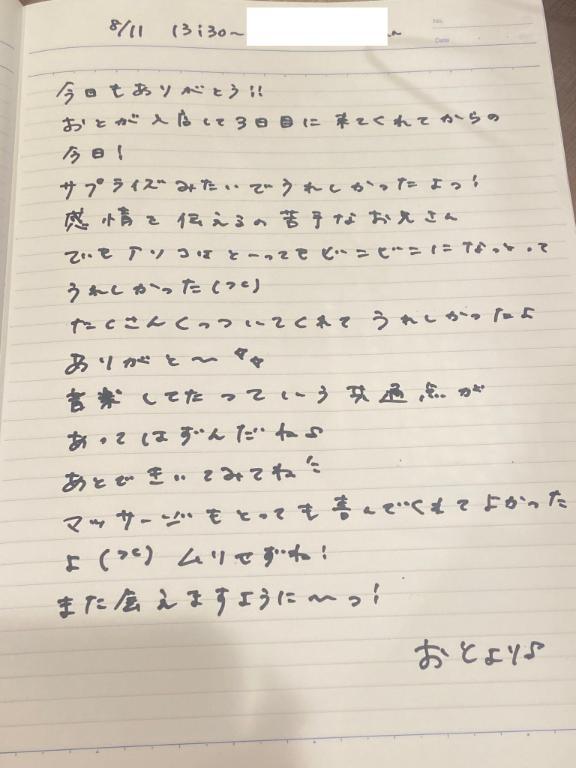 8/11 13:30〜
No.
Date
今日もありがとう!!
おとが入店して3日目に来てくれてからの
今日!
サプライズみたいでうれしかったよっ!
感情を伝えるの苦手なお兄さん
でもアソコはとーってもビンビンになってて
うれしかった
たくさんくっついてくれてうれしかったよ
ありがと〜
音楽してたっていう共通点が
あってはずんだね♪
あとできいてみてね
マッサージもとっても喜んでくれてよかった
よ ムリせずね!
また会えますように〜っ!
おとより♪